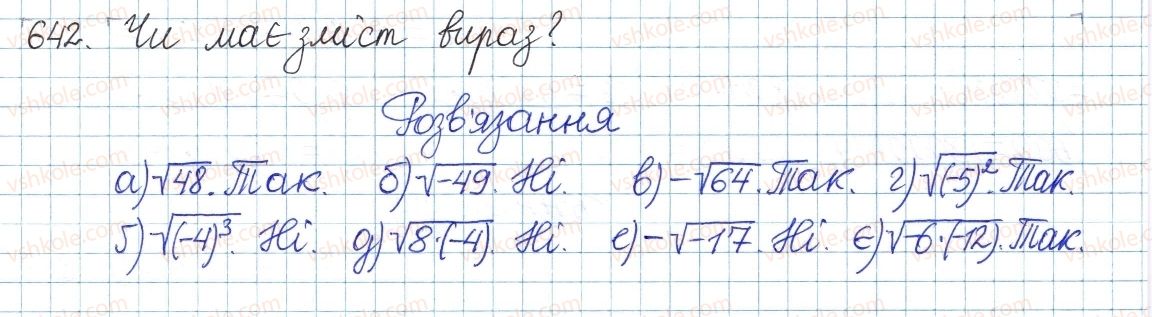 642. Чи має зміст вираз?
Розв'язання
а) √48. Так. б) √-49. Ні. в) -√64. Так. г) √(-5)². Так.
ґ) √(-4)³. Ні. д) √8·(-4). Ні. е) -√-17. Ні. є) √-6·(-12). Так.